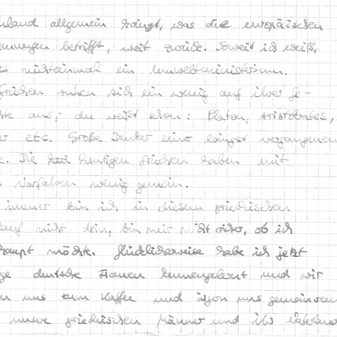 land allgemein hängt, was die europäischen
betrifft, weit zurück. Soweit ich weiß,
nichteinmal ein Umweltministerium.
Griechen ruhen sich ein wenig auf ihrer Ge-
aus; du weißt schon: Platon, Aristoteles,
etc. Große Denker einer längst vergangenen
Die heutigen Griechen haben mit
Vorfahren wenig gemein.
immer bin ich in diesem griechischen
nicht drin, bin mir nicht sicher, ob ich
möchte. Glücklicherweise habe ich jetzt
deutsche Frauen kennengelernt und wir
uns zum Kaffee und
unsere griechischen Männer und ihr